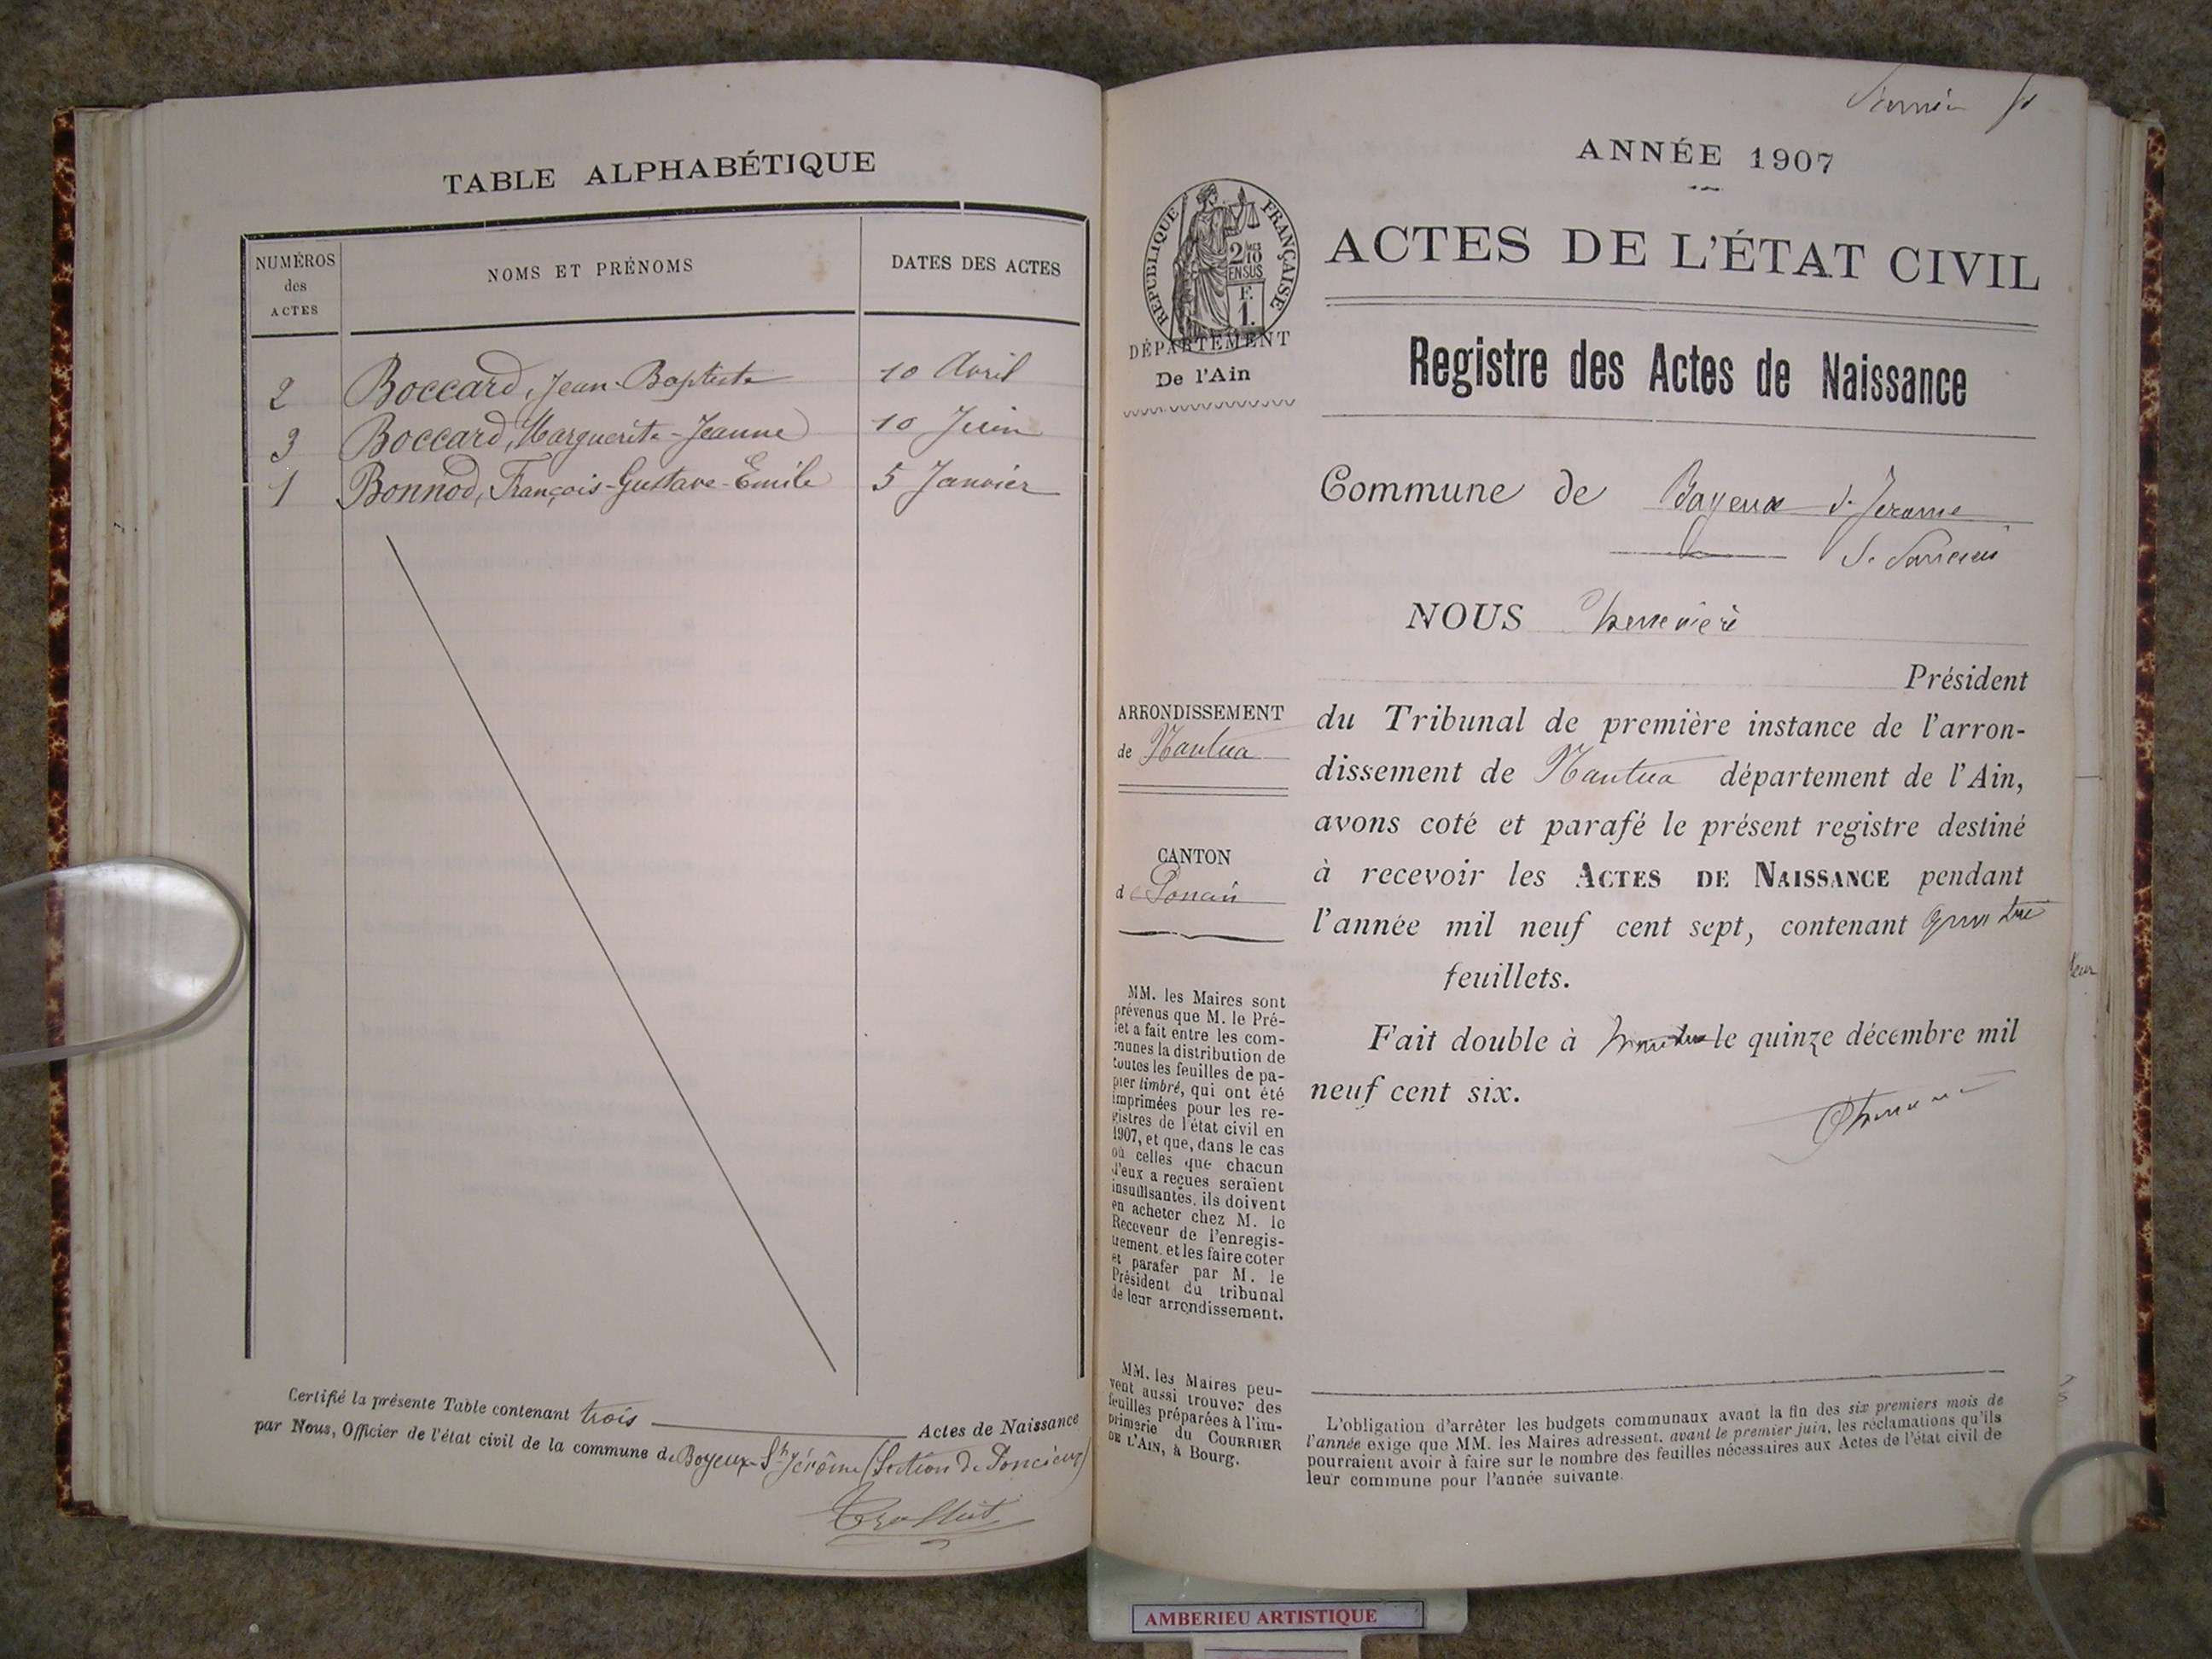 TABLE ALPHABÉTIQUE
NUMÉROS des ACTES
NOMS ET PRÉNOMS
DATES DES ACTES
2 Boccard, Jean-Baptiste 10 Avril
3 Boccard, Marguerite-Jeanne 10 Juin
1 Bonnod, François-Gustave-Emile 5 Janvier
Certifié la présente Table contenant trois Actes de Naissance
par Nous, Officier de l'état civil de la commune de Boyeux-St Jérôme (Section de Poncieux)
ANNÉE 1907
RÉPUBLIQUE FRANÇAISE
2/10 EN SUS
F. 1.
ACTES DE L'ÉTAT CIVIL
DÉPARTEMENT
De l'Ain
Registre des Actes de Naissance
Commune de Boyeux St Jerome
NOUS
Président
ARRONDISSEMENT
de Nantua
du Tribunal de première instance de l'arron-
dissement de Nantua département de l'Ain,
avons coté et parafé le présent registre destiné
CANTON
de Poncin
à recevoir les ACTES DE NAISSANCE pendant
l'année mil neuf cent sept, contenant quatre
feuillets.
Fait double à Nantua le quinze décembre mil
neuf cent six.
MM. les Maires sont
prévenus que M. le Pré-
fet a fait entre les com-
munes la distribution de
toutes les feuilles de pa-
pier timbré, qui ont été
imprimées pour les re-
gistres de l'état civil en
1907, et que, dans le cas
où celles que chacun
d'eux a reçues seraient
insuffisantes, ils doivent
en acheter chez M. le
Receveur de l'enregis-
trement, et les faire coter
et parafer par M. le
Président du tribunal
de leur arrondissement.
MM. les Maires peu-
vent aussi trouver des
feuilles préparées à l'im-
primerie du COURRIER
DE L'AIN, à Bourg.
L'obligation d'arrêter les budgets communaux avant la fin des six premiers mois de
l'année exige que MM. les Maires adressent, avant le premier juin, les réclamations qu'ils
pourraient avoir à faire sur le nombre des feuilles nécessaires aux Actes de l'état civil de
leur commune pour l'année suivante.
AMBERIEU ARTISTIQUE